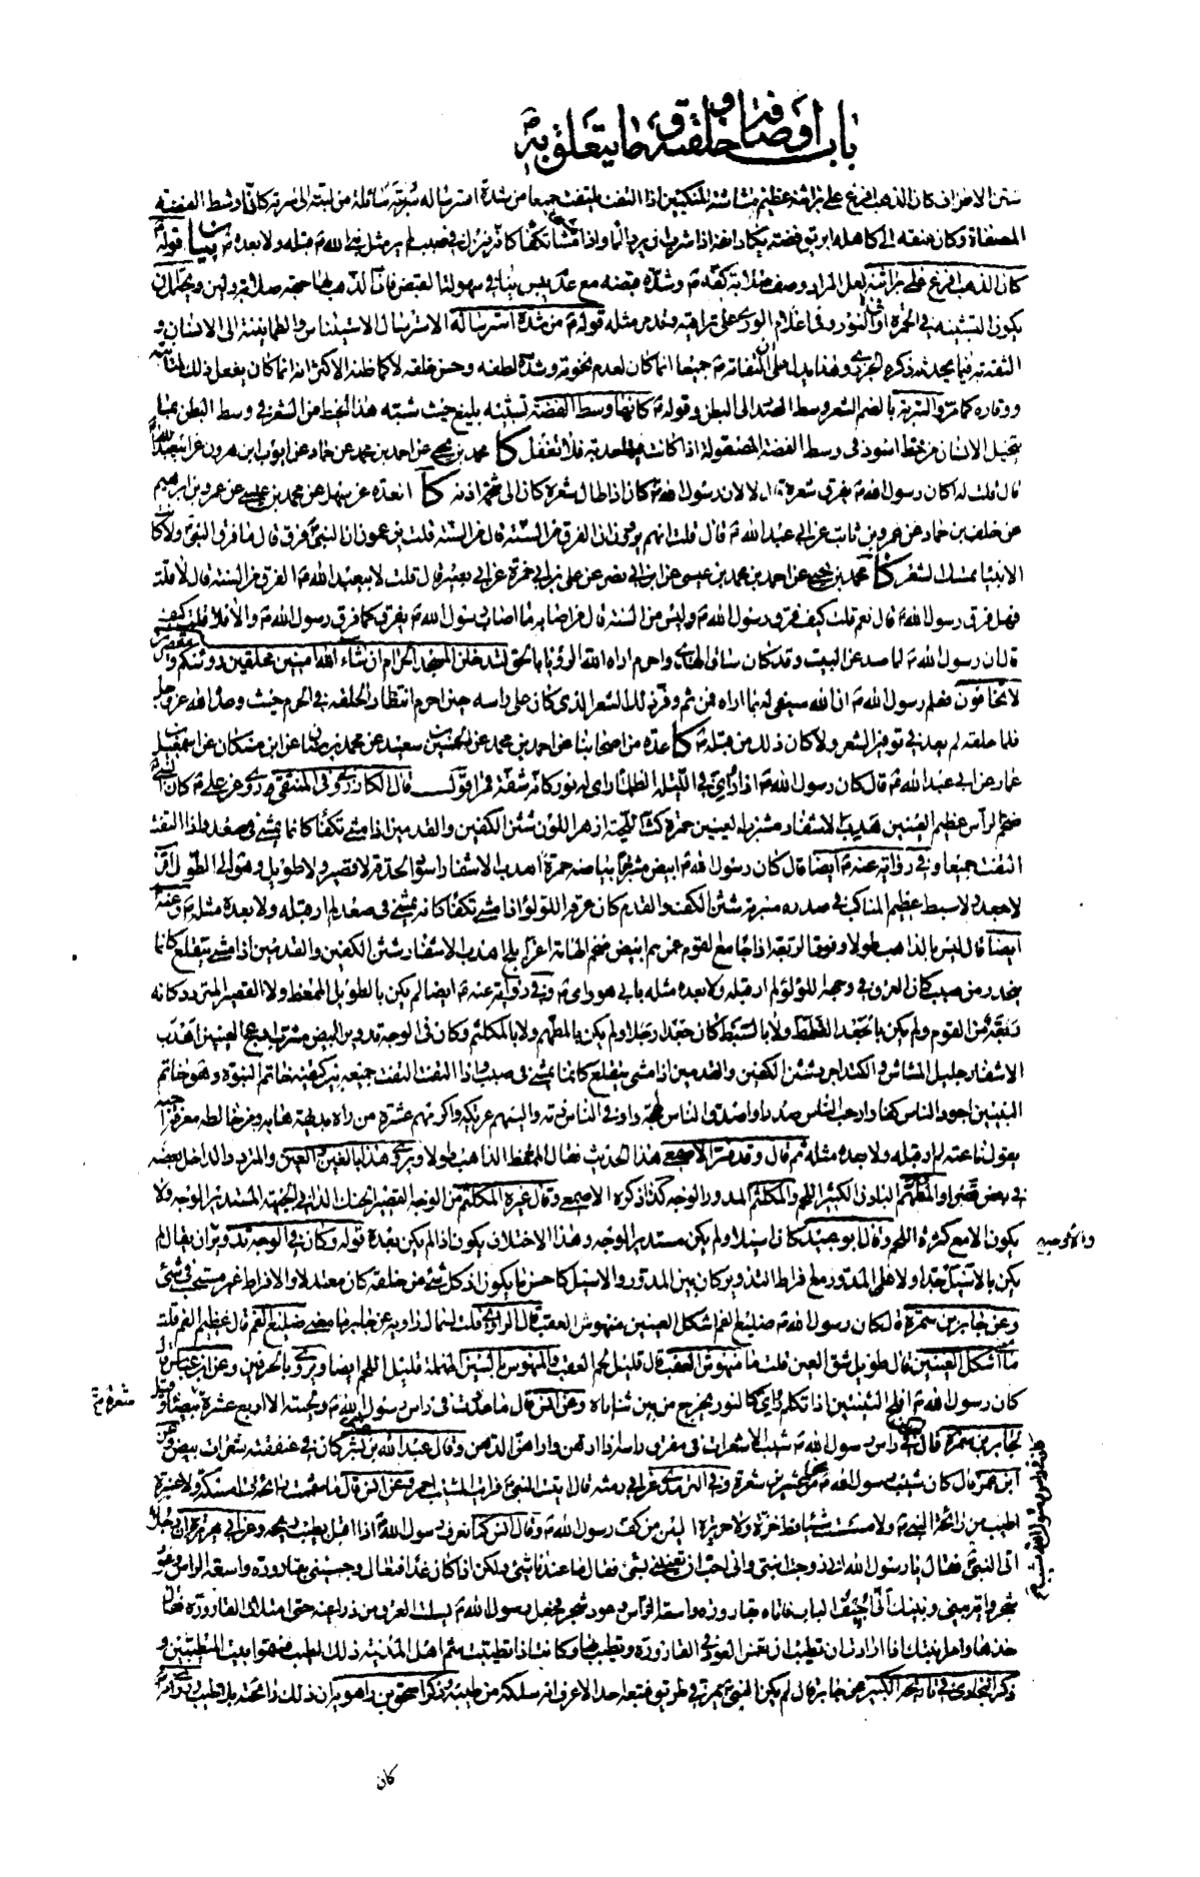 باب اوصافه و خلقته و ما يتعلق به ص
شثن الاطراف كان الذهب افرغ على براثنه عظيم مشاشة المنكبين اذا التفت يلتفت جميعا من شدة استرساله سربته سائلة من لبته الى سرته كانها وسط الفضة
المصفاة وكان عنقه الى كاهله ابريق فضة يكاد انفه اذا شرب ان يرد الماء واذا مشى تكفأ كانه ينزل في صبب لم ير مثل نبي الله ص قبله ولا بعده ص بيان قوله
كان الذهب افرغ على براثنه لعل المراد وصف صلابة كفه ص وشدة قبضه مع عدم يبس ينافي سهولة القبض فان الذهب لها جهة صلابة ولين ويحتمل ان
يكون التشبيه في الحمرة او في النور وفي اعلام الورى على تراقيه وقد مر مثله قوله ص من شدة استرساله الاسترسال الاستيناس والطمانينة الى الانسان و
الثقة به فيما يحدثه ذكره الجزري وهذا يدل على ان التفاته ص جميعا انما كان لعدم نخوته وشدة لطفه وحسن خلقه لا كما ظنه الاكثر انه انما كان يفعل ذلك لمتانته
ووقاره كما مر والسربة بالضم الشعر وسط الصدر الى البطن وقوله ص كانها وسط الفضة تشبيه بليغ حيث شبه هذا الخيط من الشعر في وسط البطن بما
يتخيل الانسان من خط اسود في وسط الفضة المصقولة اذا كانت فيها حدبة فلا تغفل كا محمد بن يحيى عن احمد بن محمد عن حماد عن ايوب بن هرون عن ابي عبد الله ع
قال قلت له اكان رسول الله ص يفرق شعره قال لا لان رسول الله ص كان اذا طال شعره كان الى شحمة اذنه كا العدة عن سهل عن محمد بن عيسى عن عمرو بن ابراهيم
عن خلف بن حماد عن عمرو بن ثابت عن ابي عبد الله ع قال قلت انهم يروون ان الفرق من السنة قال من السنة قلت يزعمون ان النبي ص فرق قال ما فرق النبي ولا كان
الانبياء تمسك الشعر كا محمد بن يحيى عن احمد بن محمد بن عيسى عن ابن ابي نصر عن علي بن ابي حمزة عن ابي بصير قال قلت لابي عبد الله ع الفرق من السنة قال لا قلت
فهل فرق رسول الله ص قال نعم قلت كيف فرق رسول الله ص وليس من السنة قال من اصابه ما اصاب رسول الله ص يفرق كما فرق رسول الله ص والا فلا قلت كيف
قال ان رسول الله ص لما صد عن البيت وقد كان ساق الهدي واحرم اراه الله الرؤيا بالحق لتدخلن المسجد الحرام ان شاء الله امنين محلقين رؤسكم ومقصرين
لا تخافون فعلم رسول الله ص ان الله سيفي له بما اراه فمن ثم وفر ذلك الشعر الذي كان على راسه حين احرم انتظارا لحلقه في الحرم حيث وعده الله عز وجل
فلما حلقه لم يعد في توفير الشعر ولا كان ذلك من قبله ص كا عدة من اصحابنا عن احمد بن محمد عن الحسين بن سعيد عن محمد بن سنان عن ابن مسكان عن اسمعيل بن
عمار عن ابي عبد الله ع قال كان رسول الله ص اذا رئي في الليلة الظلماء رئي له نور كانه شقة قمر اقول قال الكازروني في المنتقى روي عن علي ع كان النبي ص
ضخم الرأس عظيم العينين هدب الاشفار مشرب العينين حمرة كث اللحية ازهر اللون شثن الكفين والقدمين اذا مشى تكفأ كانما يمشي في صعد واذا التفت
التفت جميعا وفي رواية عنه ع ايضا قال كان رسول الله ص ابيض مشربا بياضه حمرة اهدب الاشفار اسود الحدقة لا قصير ولا طويل وهو الى الطول اقرب
لا جعد ولا سبط عظيم المناكب في صدره مسربة شثن الكف والقدم كان عرقه اللؤلؤ اذا مشى تكفأ كانه يمشي في صعد لم ار قبله ولا بعده مثله ص وعنه
ايضا قال ليس بالذاهب طولا وفوق الربعة اذا جامع القوم غمرهم ابيض ضخم الهامة اغر ابلج اهدب الاشفار شثن الكفين والقدمين اذا مشى يتقلع كانما
ينحدر من صبب كان العرق في وجهه اللؤلؤ لم ار قبله ولا بعده مثله بابي هو وامي ص وفي رواية عنه ع ايضا لم يكن بالطويل الممغط ولا القصير المتردد كانه
ربعة من القوم ولم يكن بالجعد القطط ولا بالسبط كان جعدا رجلا ولم يكن بالمطهم ولا بالمكلثم وكان في الوجه تدوير ابيض مشرب ادعج العينين اهدب
الاشفار جليل المشاش والكتد اجرد شثن الكفين والقدمين اذا مشى يتقلع كانما يمشي في صبب واذا التفت التفت جميعه بين كتفيه خاتم النبوة وهو خاتم
النبيين اجود الناس كفا وارحب الناس صدرا واصدق الناس لهجة واوفى الناس ذمة والينهم عريكة واكرمهم عشرة من راه بديهة هابه ومن خالطه معرفة احبه
يقول ناعته لم ار قبله ولا بعده مثله ثم قال وقد فسر الاصمعي هذا الحديث فقال الممغط الذاهب طولا ويروى هذا بالغين والعين والمتردد الداخل بعضه
في بعض قصرا والمطهم البادن الكثير اللحم والمكلثم المدور الوجه كذا ذكره الاصمعي وقال غيره المكلثم من الوجه القصير الحنك الداني الجبهة المستدير الوجه ولا
يكون الا مع كثرة اللحم وقال ابو عبيد كان اسيلا ولم يكن مستدير الوجه وهذا الاختلاف يكون اذا لم يكن بعده قوله وكان في الوجه تدوير ان يقال لم
يكن بالاسيل جدا ولا على المدور مع افراط التدوير كان بين المدور والاسيل كاحسن ما يكون اذ كل شئ من خلقه كان معتدلا والافراط غير مستحب في شئ
وعن جابر بن سمرة قال كان رسول الله ص ضليع الفم اشكل العينين منهوش العقب قال الراوي قلت لسماك راويه عن جابر ما معنى ضليع الفم قال عظيم الفم قلت
ما اشكل العينين قال طويل شق العين قلت ما منهوش العقب قال قليل لحم العقب والمنهوس بالسين المهملة قليل اللحم ايضا ويروى بالحرفين وعن ابن عباس قال
كان رسول الله ص افلج الثنيتين اذا تكلم رئي كالنور يخرج من بين ثناياه وعن انس قال ما عددت في راس رسول الله ص ولحيته الا اربع عشرة بيضاء وقيل
لجابر بن سمرة قال لم يكن في راس رسول الله ص شيب الا شعرات في مفرق راسه اذا ادهن واراهن الدهن وقال عبد الله بن بسر كان في عنفقته شعرات بيض وعن
ابن عمر قال كان شيب رسول الله ص نحوا من عشرين شعرة وفي الترمذي عن ابي رمثة قال اتيت النبي فرايت الشيب احمر وعن انس قال ما شممت رائحة مسكة ولا عنبرة
اطيب من رائحة النبي ص ولا مسست شيئا قط خزة ولا حريرة الين من كف رسول الله ص وقال انس كنا نعرف رسول الله ص اذا اقبل بطيب ريحه وعن ابي هريرة ان رجلا
اتى النبي ص فقال يا رسول الله اني زوجت ابنتي واني احب ان تعينني بشئ فقال ما عندنا شئ ولكن اذا كان غدا فتعال وجئني بقارورة واسعة الراس وعود
شجر واية بيني وبينك اني اجيف الباب فاتاه بقارورة واسعة الراس وعود شجر فجعل رسول الله ص يسلت العرق من ذراعيه حتى امتلات القارورة فقال
خذها وامر بنتك اذا ارادت ان تطيب ان تغمس العود في القارورة وتطيب بها وكانت اذا تطيبت شم اهل المدينة ذلك الطيب فسموا بيت المطيبين و
ذكر البخاري في تاريخه الكبير عن جابر قال لم يكن النبي ص يمر في طريق فيتبعه احد الا عرف انه سلكه من طيبه وذكر اسحق بن راهويه ان ذلك رائحته بلا طيب
والاوجه
شعرة خ
كان